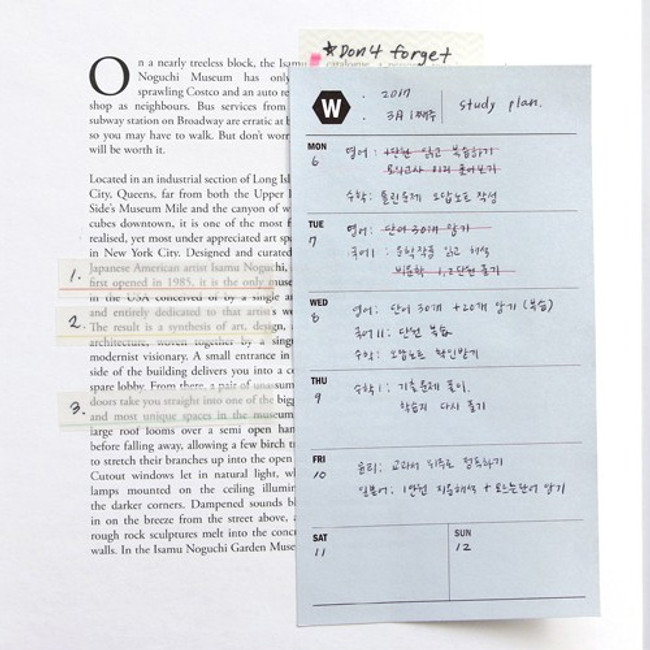 ★Don't forget
On a nearly treeless block, the Isamu
Noguchi Museum has only
sprawling Costco and an auto re
shop as neighbours. Bus services from
subway station on Broadway are erratic at b
so you may have to walk. But don't worr
will be worth it.
Located in an industrial section of Long Isl
City, Queens, far from both the Upper
Side's Museum Mile and the canyon of w
cubes downtown, it is one of the most f
realised, yet most under appreciated art sp
in New York City. Designed and curated
1. Japanese American artist Isamu Noguchi,
first opened in 1985, it is the only muse
in the USA conceived of by a single ar
and entirely dedicated to that artist's w
2. The result is a synthesis of art, design,
architecture, woven together by a sing
modernist visionary. A small entrance in
side of the building delivers you into a c
spare lobby. From there, a pair of unassum
3. doors take you straight into one of the big
and most unique spaces in the museum
large roof looms over a semi open han
before falling away, allowing a few birch t
to stretch their branches up into the open
Cutout windows let in natural light, w
lamps mounted on the ceiling illumin
the darker corners. Dampened sounds bl
in on the breeze from the street above,
rough rock sculptures melt into the conc
walls. In the Isamu Noguchi Garden Muse
W
2017
3月 1째주
study plan.
MON
6
영어: 1단원 읽고 복습하기
모의고사 1회 풀어보기
수학: 틀린문제 오답노트 작성
TUE
7
영어: 단어 30개 암기
국어I: 문학작품 읽고 해석
비문학 1,2단원 풀기
WED
8
영어: 단어 30개 +20개 암기(복습)
국어II: 단원 복습
수학: 오답노트 확인받기
THU
9
수학I: 기출문제 풀이.
학습지 다시 풀기
FRI
10
윤리: 교과서 위주로 정독하기
일본어: 1단원 지문해석 + 모르는단어 암기
SAT
11
SUN
12